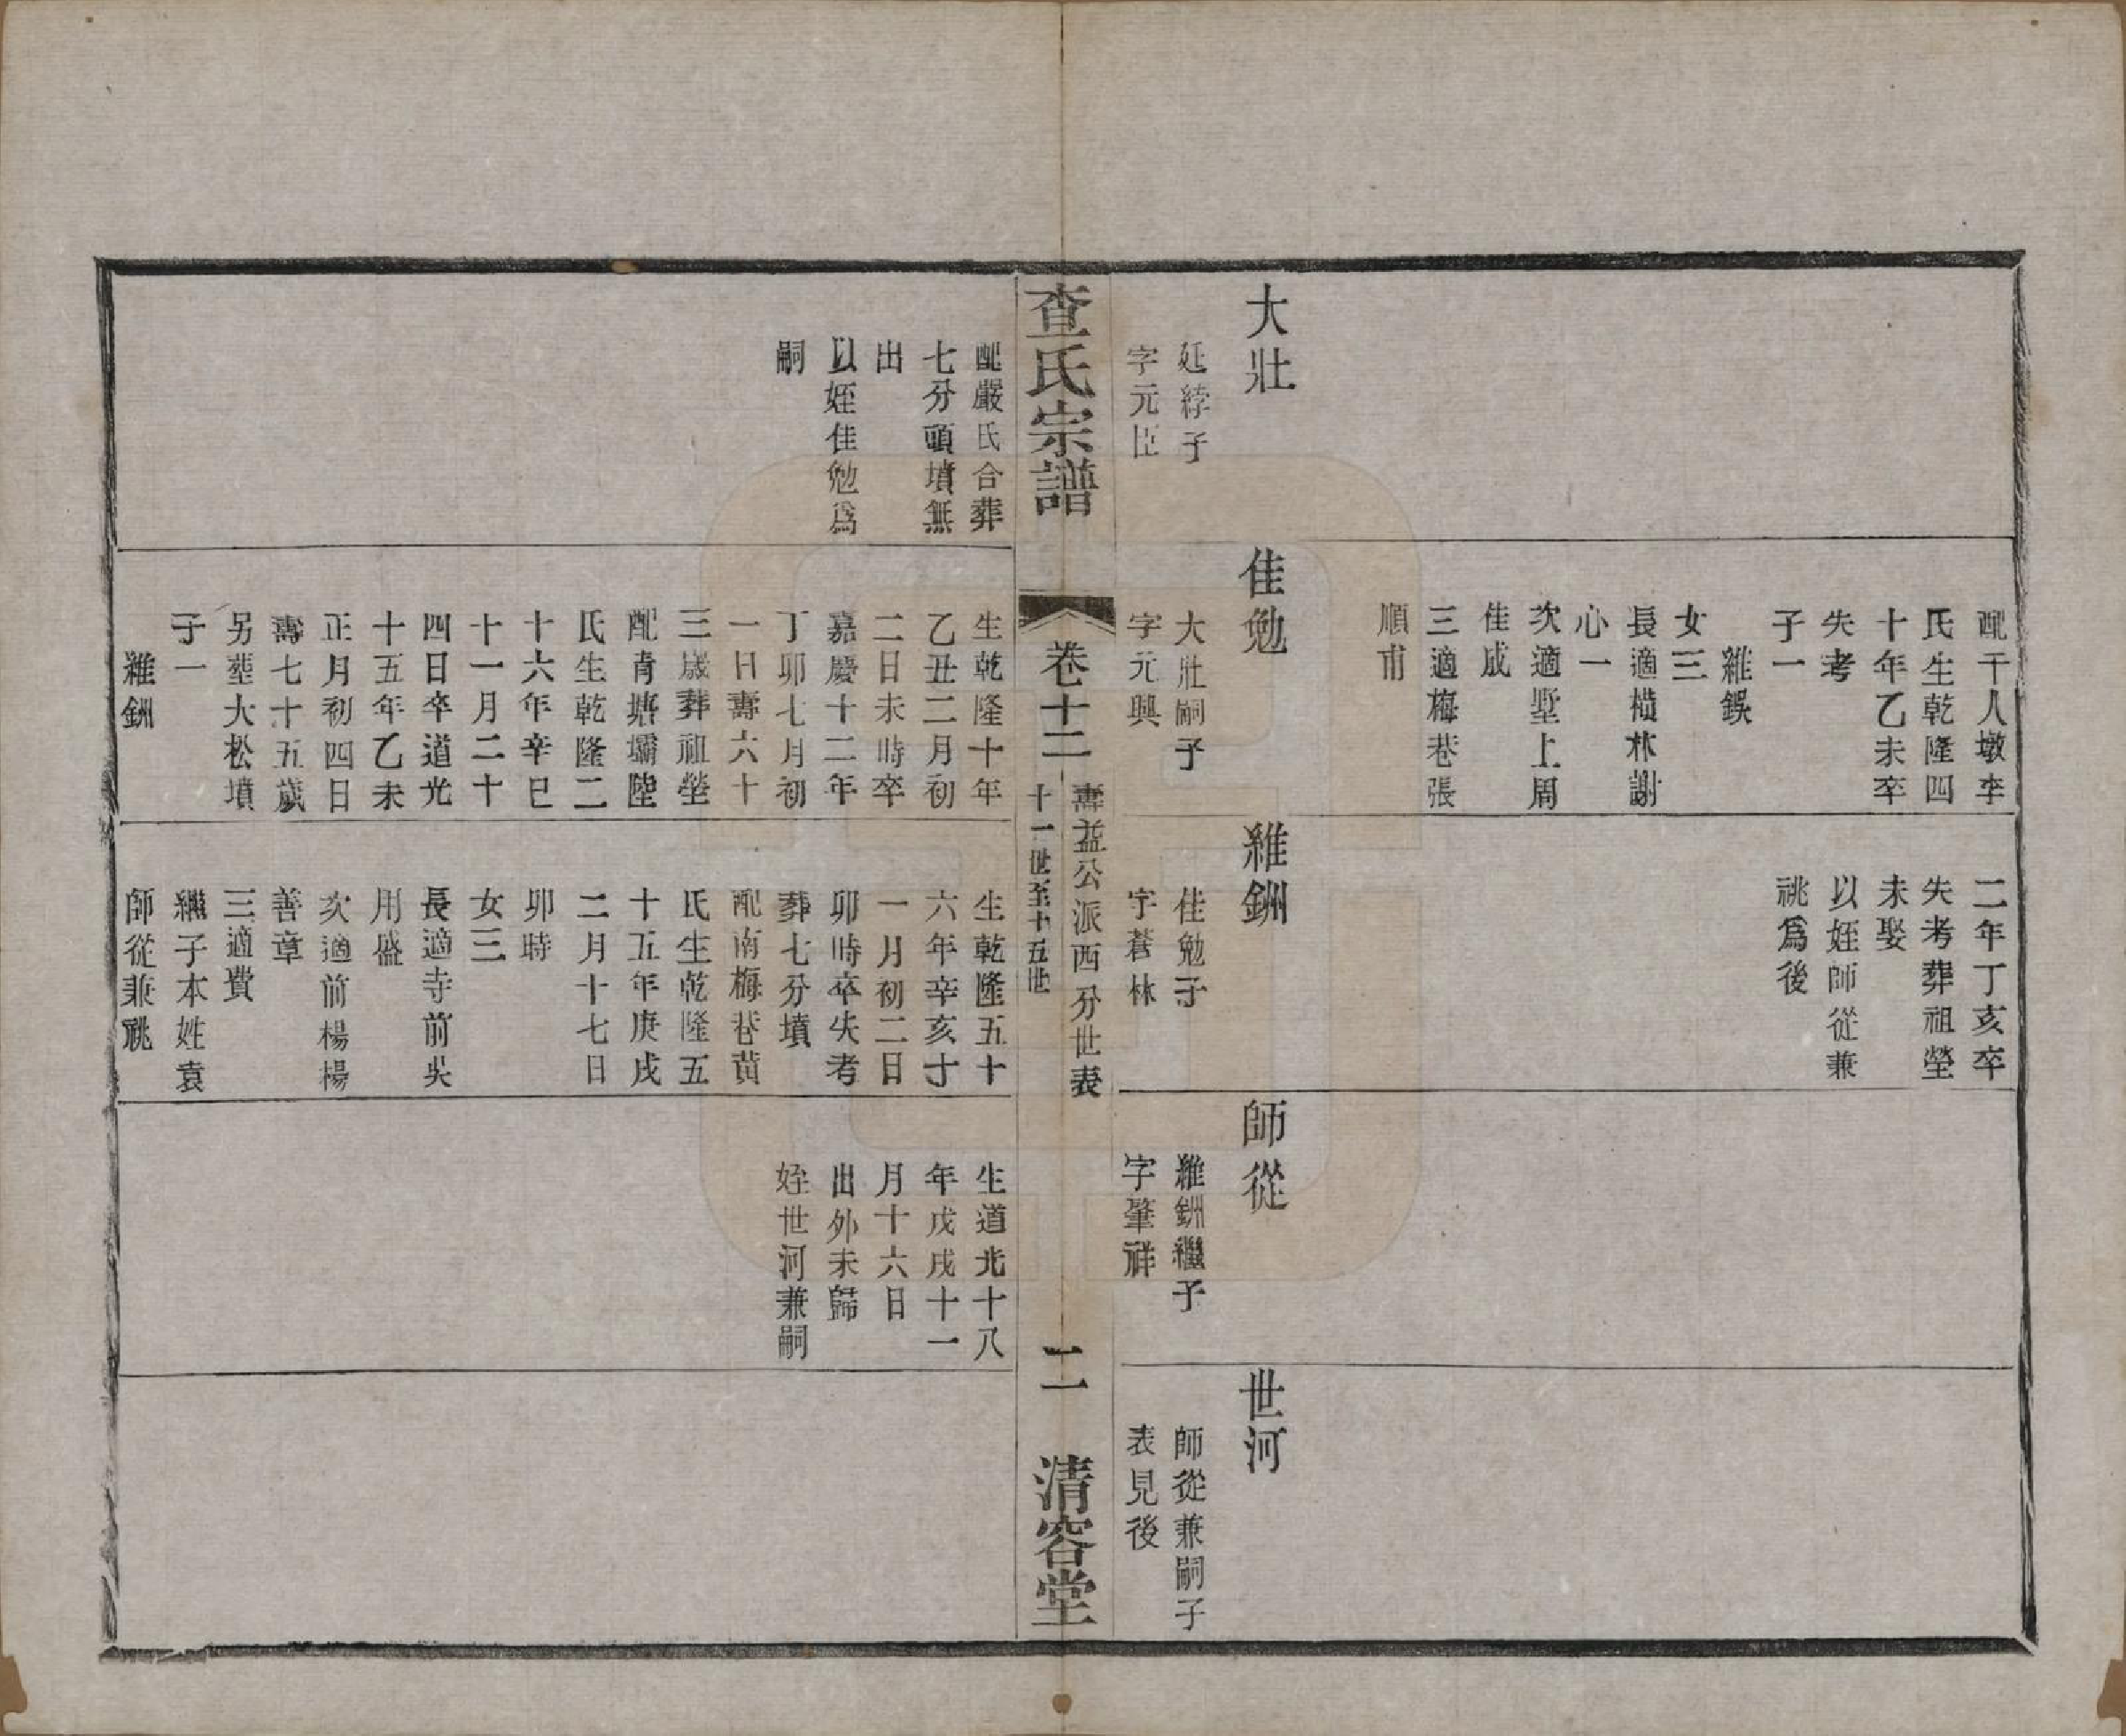 配干人墩李
氏生乾隆四
十年乙未卒
失考
子一
維鋘
女三
長適橫林謝
心一
次適墅上周
佳成
三適梅巷張
順甫
二年丁亥卒
失考葬祖塋
未娶
以姪師從兼
祧爲後
大壯
延綍子
字元臣
佳勉
大壯嗣子
字元興
維銂
佳勉子
字蒼林
師從
維銂繼子
字肇祥
世河
師從兼嗣子
表見後
查氏宗譜
卷十二
壽益公派西分世表
十一世至十五世
二
清容堂
配嚴氏合葬
七分頭墳無
出
以姪佳勉爲
嗣
生乾隆十年
乙丑二月初
二日未時卒
嘉慶十二年
丁卯七月初
一日壽六十
三歲葬祖塋
配青塘壩陸
氏生乾隆二
十六年辛巳
十一月二十
四日卒道光
十五年乙未
正月初四日
壽七十五歲
另塟大松墳
子一
維銂
生乾隆五十
六年辛亥十
一月初二日
卯時卒失考
葬七分墳
配南梅巷黃
氏生乾隆五
十五年庚戌
二月十七日
卯時
女三
長適寺前吳
用盛
次適前楊楊
善章
三適費
繼子本姓袁
師從兼祧
生道光十八
年戊戌十一
月十六日
出外未歸
姪世河兼嗣